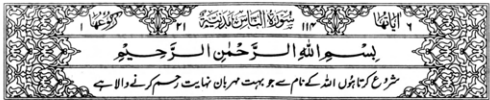 اٰیَاتُهَا ٦ سُوْرَةُ النَّاسِ مَدَنِیَّةٌ ١١٤ ٢١ رُكُوْعُهَا ١
بِسْمِ اللّٰهِ الرَّحْمٰنِ الرَّحِيْمِ
شروع کرتا ہوں اللہ کے نام سے جو بہت مہربان نہایت رحم کرنے والا ہے